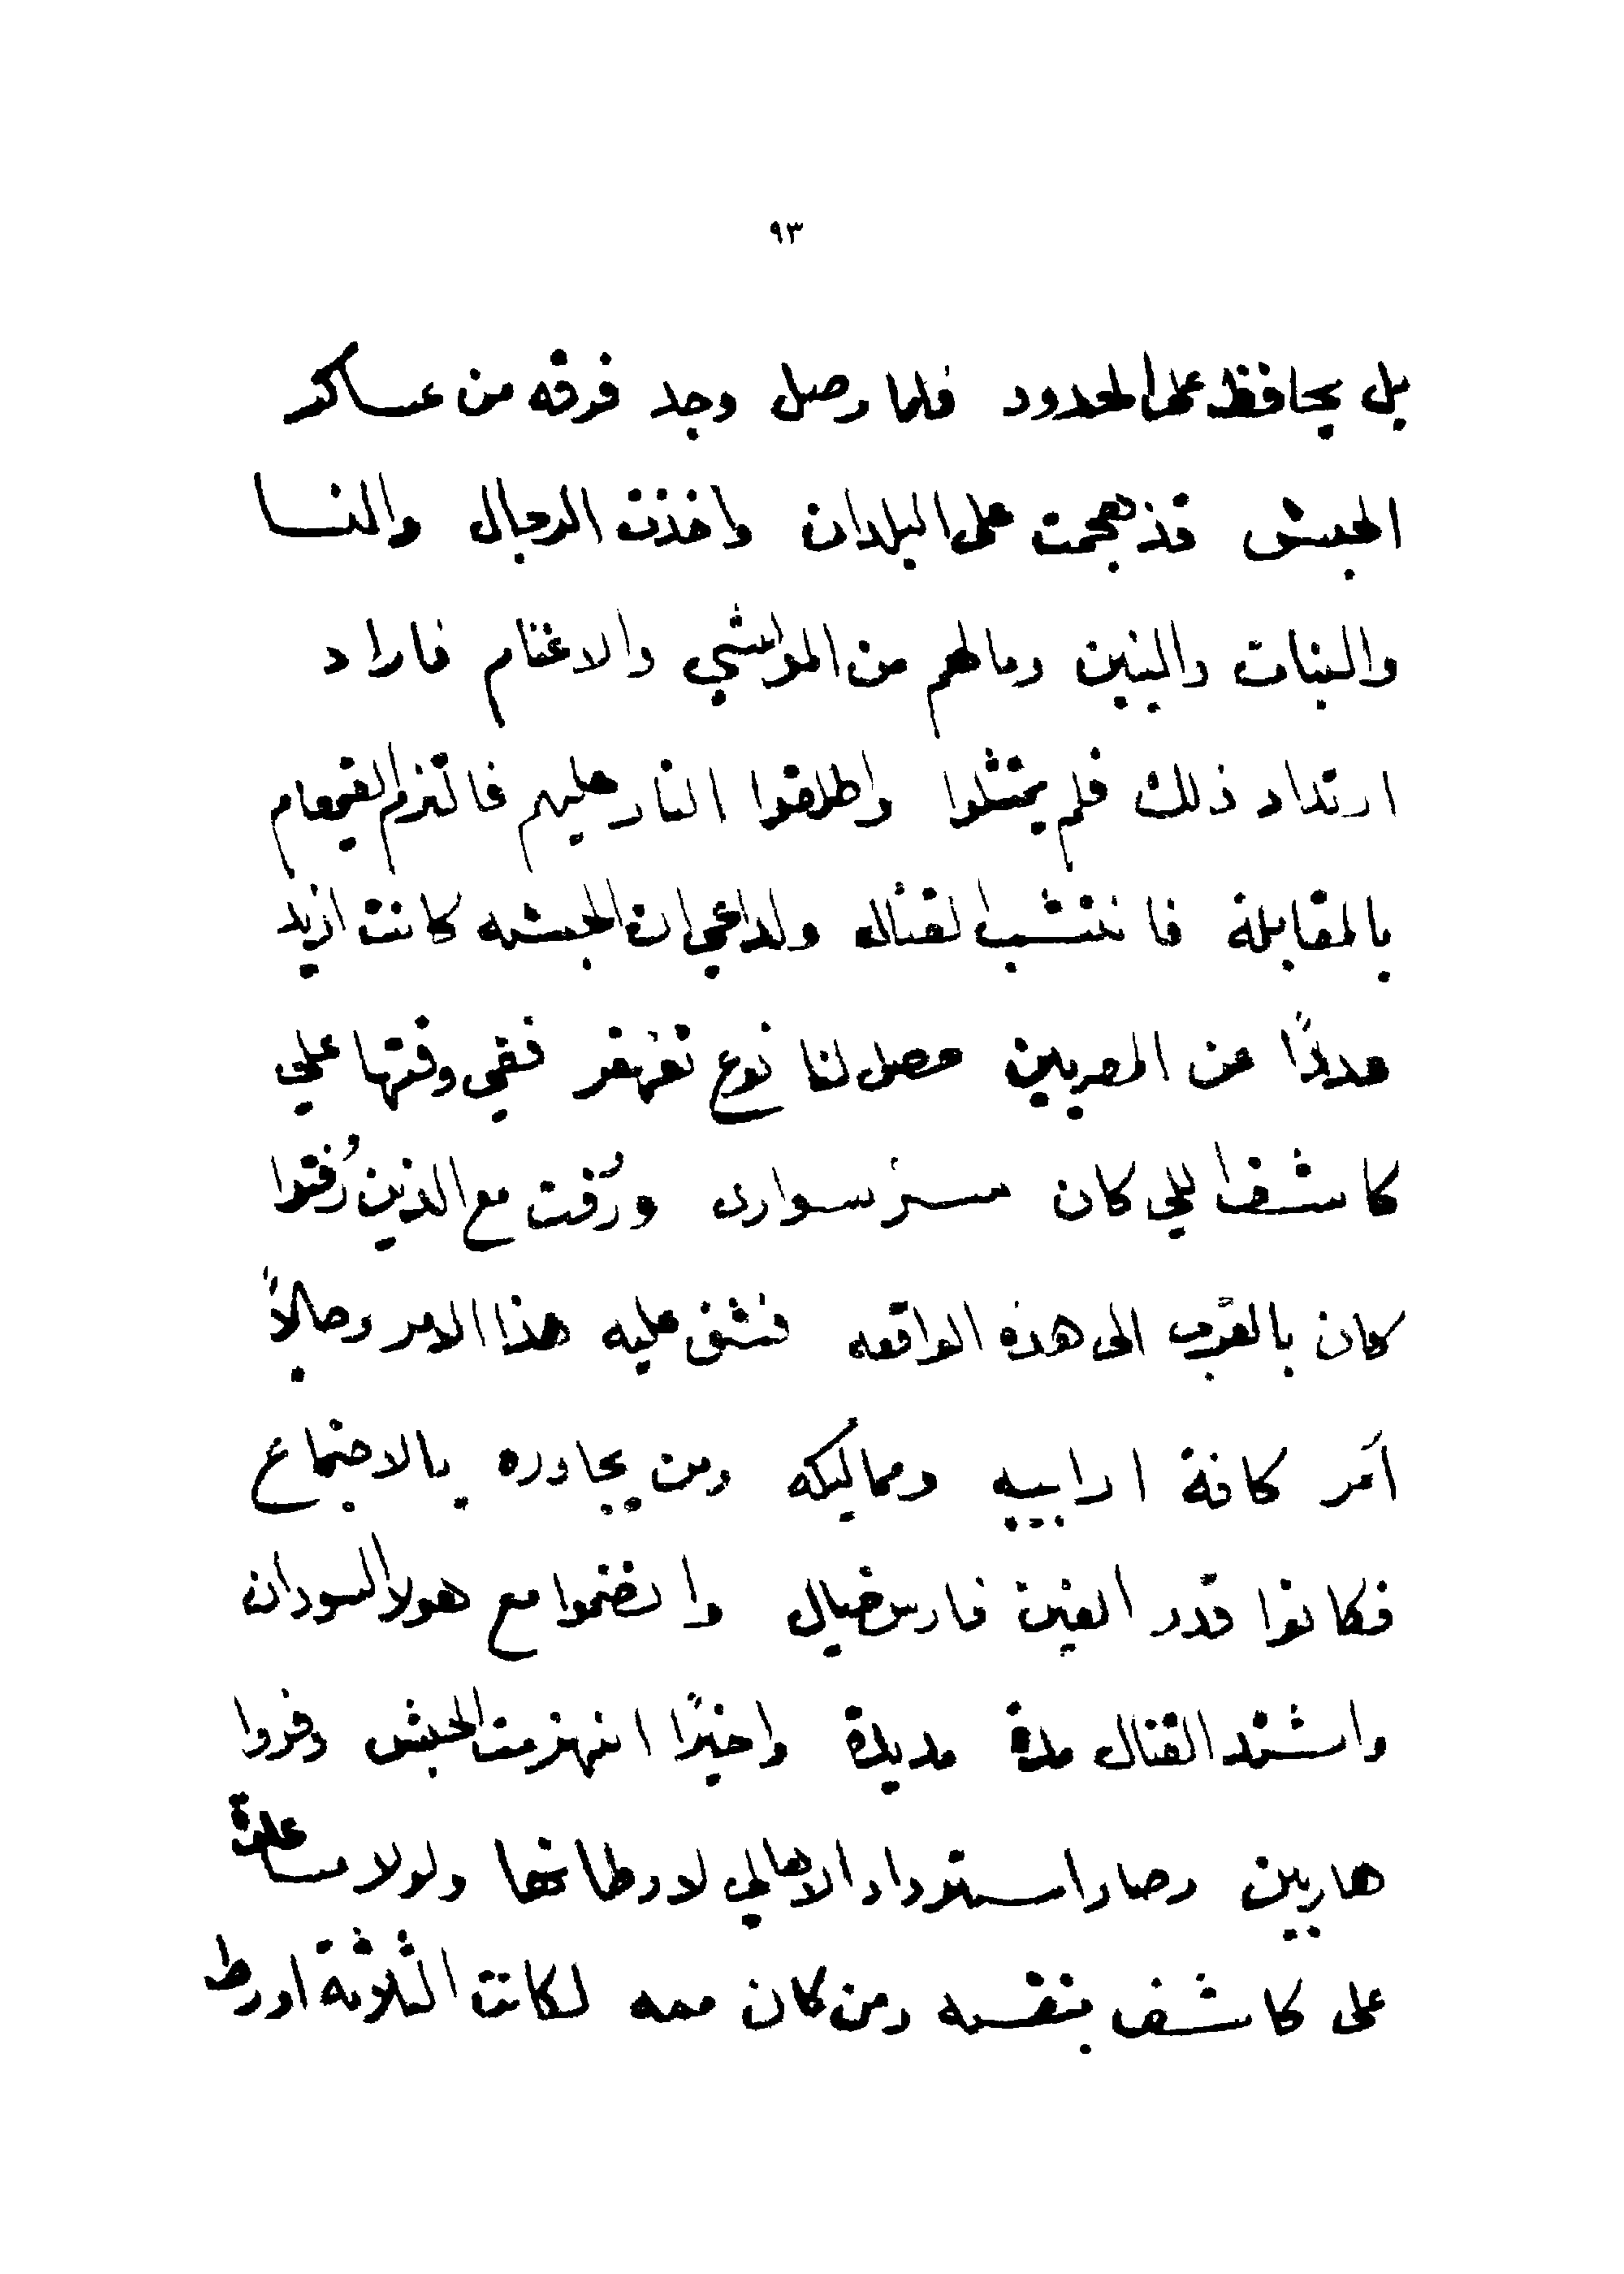 ٩٣
بل يحافظ على الحدود فلما وصل وجد فرقه من عساكر
الحبش قد هجمت على البلدان واخذت الرجال والنسا
والبنات والبنين ومالهم من المواشي والاغنام فاراد
ارتداد ذلك فلم يمتثلوا واطلقوا النار عليهم فالتزم القيمقام
بالمقابلة فانتشب القتال ولداعي ان الحبشه كانت ازيد
عددًا عن المصريين حصل لنا نوع تقهقر ففي وقتها علي
كاشف اللي كان سر سواري ورُفت مع الذين رُفتوا
كان بالقرب الى هذه الواقعه فشق عليه هذا الامر وحالاً
أمر كافة ارابيبه ومماليكه ومن يجاوره بالاجتماع
فكانوا قدر الفين فارس خيال وانضموا مع هولا السودان
واشتد القتال مدة مديدة واخيرًا انهزمت الحبش وفروا
هاربين وصار استرداد الاهالي لاوطانها ولولا مساعدة
على كاشف بنفسه ومن كان معه لكانت الثلاثة اورط